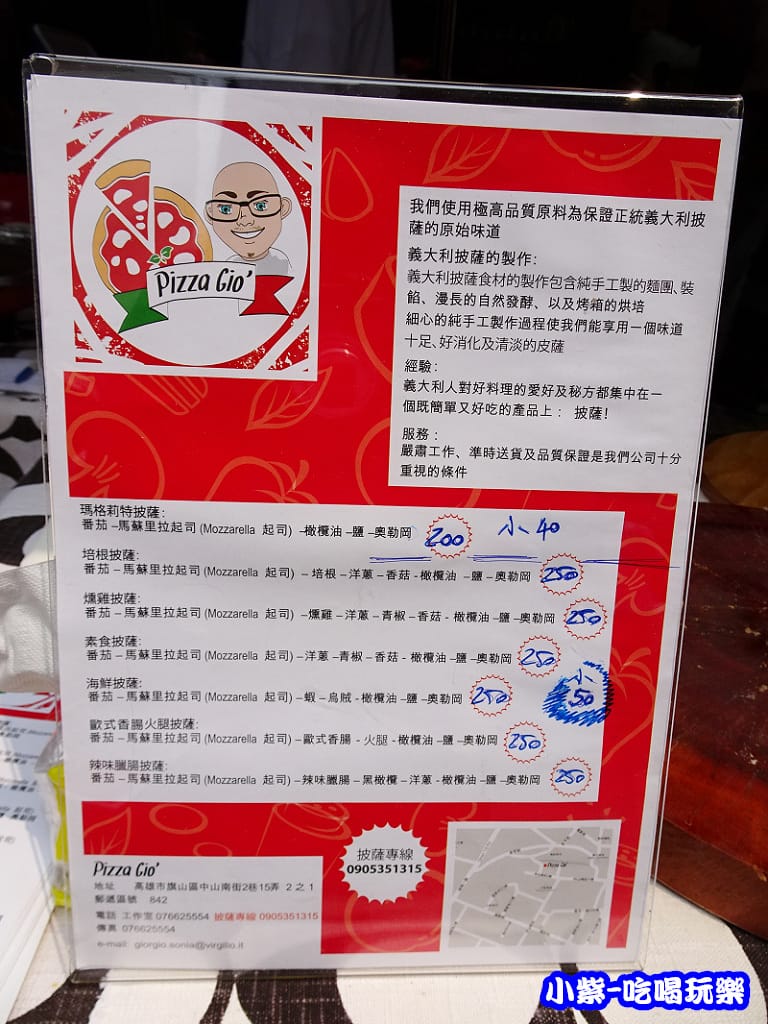 Pizza Gio'
我們使用極高品質原料為保證正統義大利披
薩的原始味道
義大利披薩的製作:
義大利披薩食材的製作包含純手工製的麵團、裝
餡、漫長的自然發酵、以及烤箱的烘培
細心的純手工製作過程使我們能享用一個味道
十足、好消化及清淡的皮薩
經驗:
義大利人對好料理的愛好及秘方都集中在一
個既簡單又好吃的產品上： 披薩!
服務：
嚴肅工作、準時送貨及品質保證是我們公司十分
重視的條件
瑪格莉特披薩:
番茄 –馬蘇里拉起司 (Mozzarella 起司) –橄欖油 –鹽 –奧勒岡 200 小 40
培根披薩:
番茄 – 馬蘇里拉起司 (Mozzarella 起司) – 培根 – 洋蔥 – 香菇 - 橄欖油 –鹽 –奧勒岡 250
燻雞披薩:
番茄 – 馬蘇里拉起司 (Mozzarella 起司) –燻雞 – 洋蔥 – 青椒 – 香菇 - 橄欖油 –鹽 –奧勒岡 250
素食披薩:
番茄 – 馬蘇里拉起司 (Mozzarella 起司) –洋蔥 –青椒 – 香菇 - 橄欖油 –鹽 –奧勒岡 250
海鮮披薩:
番茄 – 馬蘇里拉起司 (Mozzarella 起司) –蝦 – 烏賊 - 橄欖油 –鹽 –奧勒岡 250 小 50
歐式香腸火腿披薩:
番茄 – 馬蘇里拉起司 (Mozzarella 起司) –歐式香腸 - 火腿 - 橄欖油 –鹽 –奧勒岡 250
辣味臘腸披薩:
番茄 – 馬蘇里拉起司 (Mozzarella 起司) – 辣味臘腸 – 黑橄欖 – 洋蔥 - 橄欖油 –鹽 –奧勒岡 250
披薩專線
0905351315
Pizza Gio'
Pizza Gio'
地址 高雄市旗山區中山南街2巷15弄 2 之 1
郵遞區號 842
電話 工作室 076625554 披薩專線 0905351315
傳真 076625554
e-mail: giorgio.sonia@virgilio.it
小紫-吃喝玩樂